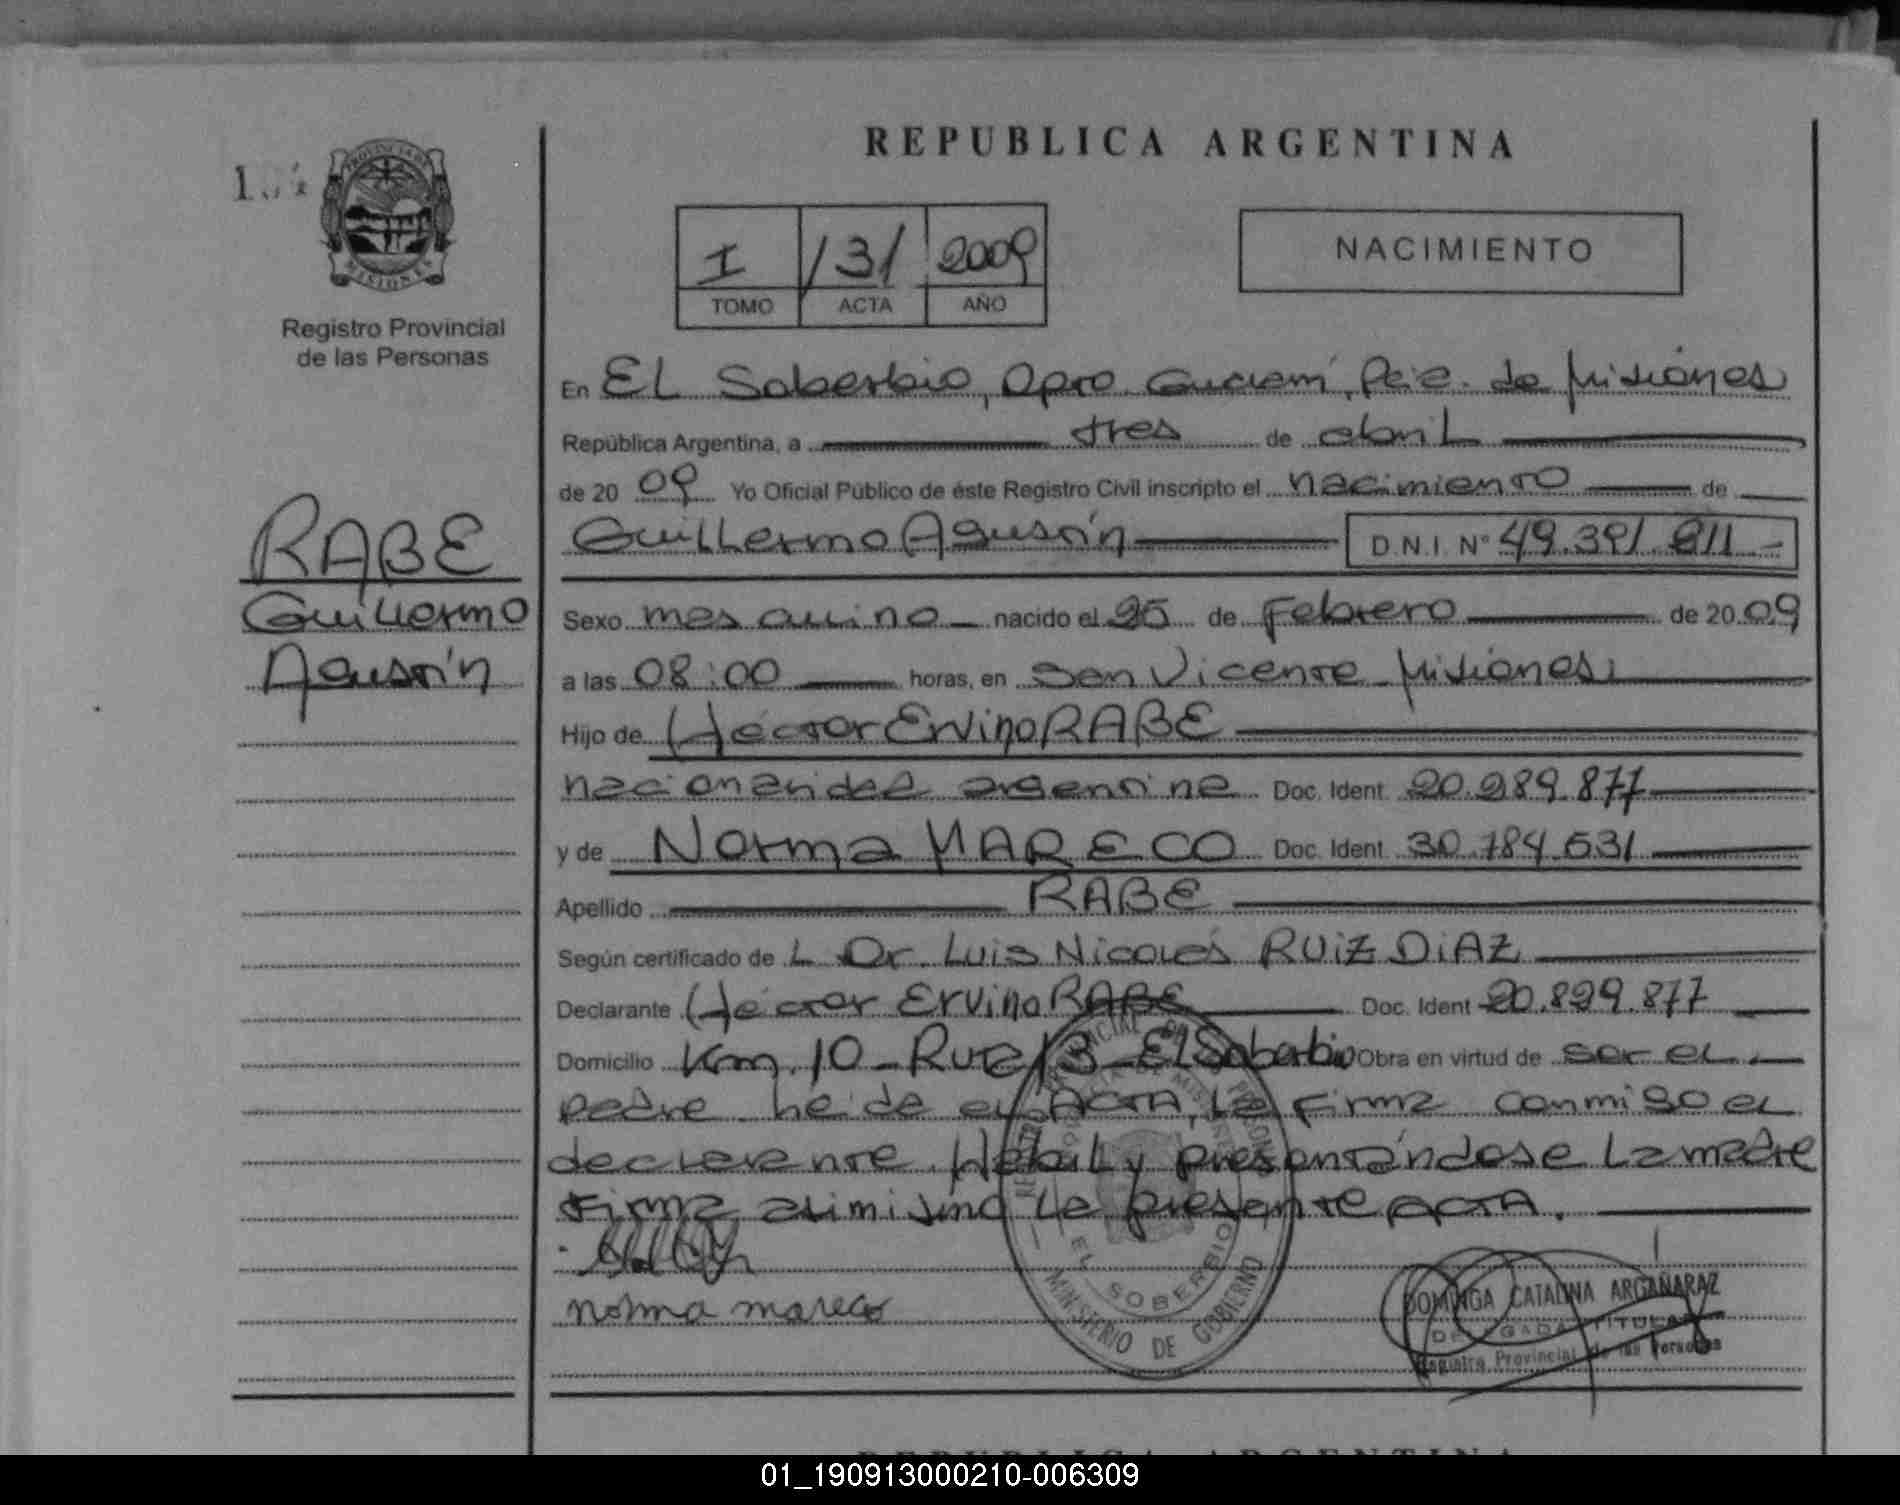 REPUBLICA ARGENTINA
PROVINCIA DE
MISIONES
Registro Provincial
de las Personas
I /31/ 2009
TOMO ACTA AÑO
NACIMIENTO
En EL Soberbio, Dpto. Guaraní, Pcia. de Misiones
República Argentina, a tres de abril
de 20 09 Yo Oficial Público de éste Registro Civil inscripto el nacimiento de
Guillermo Agustín D.N.I. Nº 49.391.811 -
RABE
Guillermo
Agustín
Sexo masculino nacido el 25 de Febrero de 20 09
a las 08:00 horas, en San Vicente Misiones
Hijo de Héctor Ervino RABE
nacionalidad argentina Doc. Ident. 20.289.877
y de Norma MARECO Doc. Ident. 30.784.531
Apellido RABE
Según certificado de L Dr. Luis Nicolás RUIZ DIAZ
Declarante Héctor Ervino RABE Doc. Ident 20.829.877
Domicilio Km. 10 - Ruta 13 - El Soberbio Obra en virtud de ser el
padre. heida el ACTA, la firma conmigo el
declarante Hábil y presentándose la madre
firma asimismo la presente ACTA.
norma mareco
EL SOBERBIO
MINISTERIO DE GOBIERNO
DOMINGA CATALINA ARGAÑARAZ
DELEGADA TITULAR
Registro Provincial de las Personas
REPUBLICA ARGENTINA
01_190913000210-006309